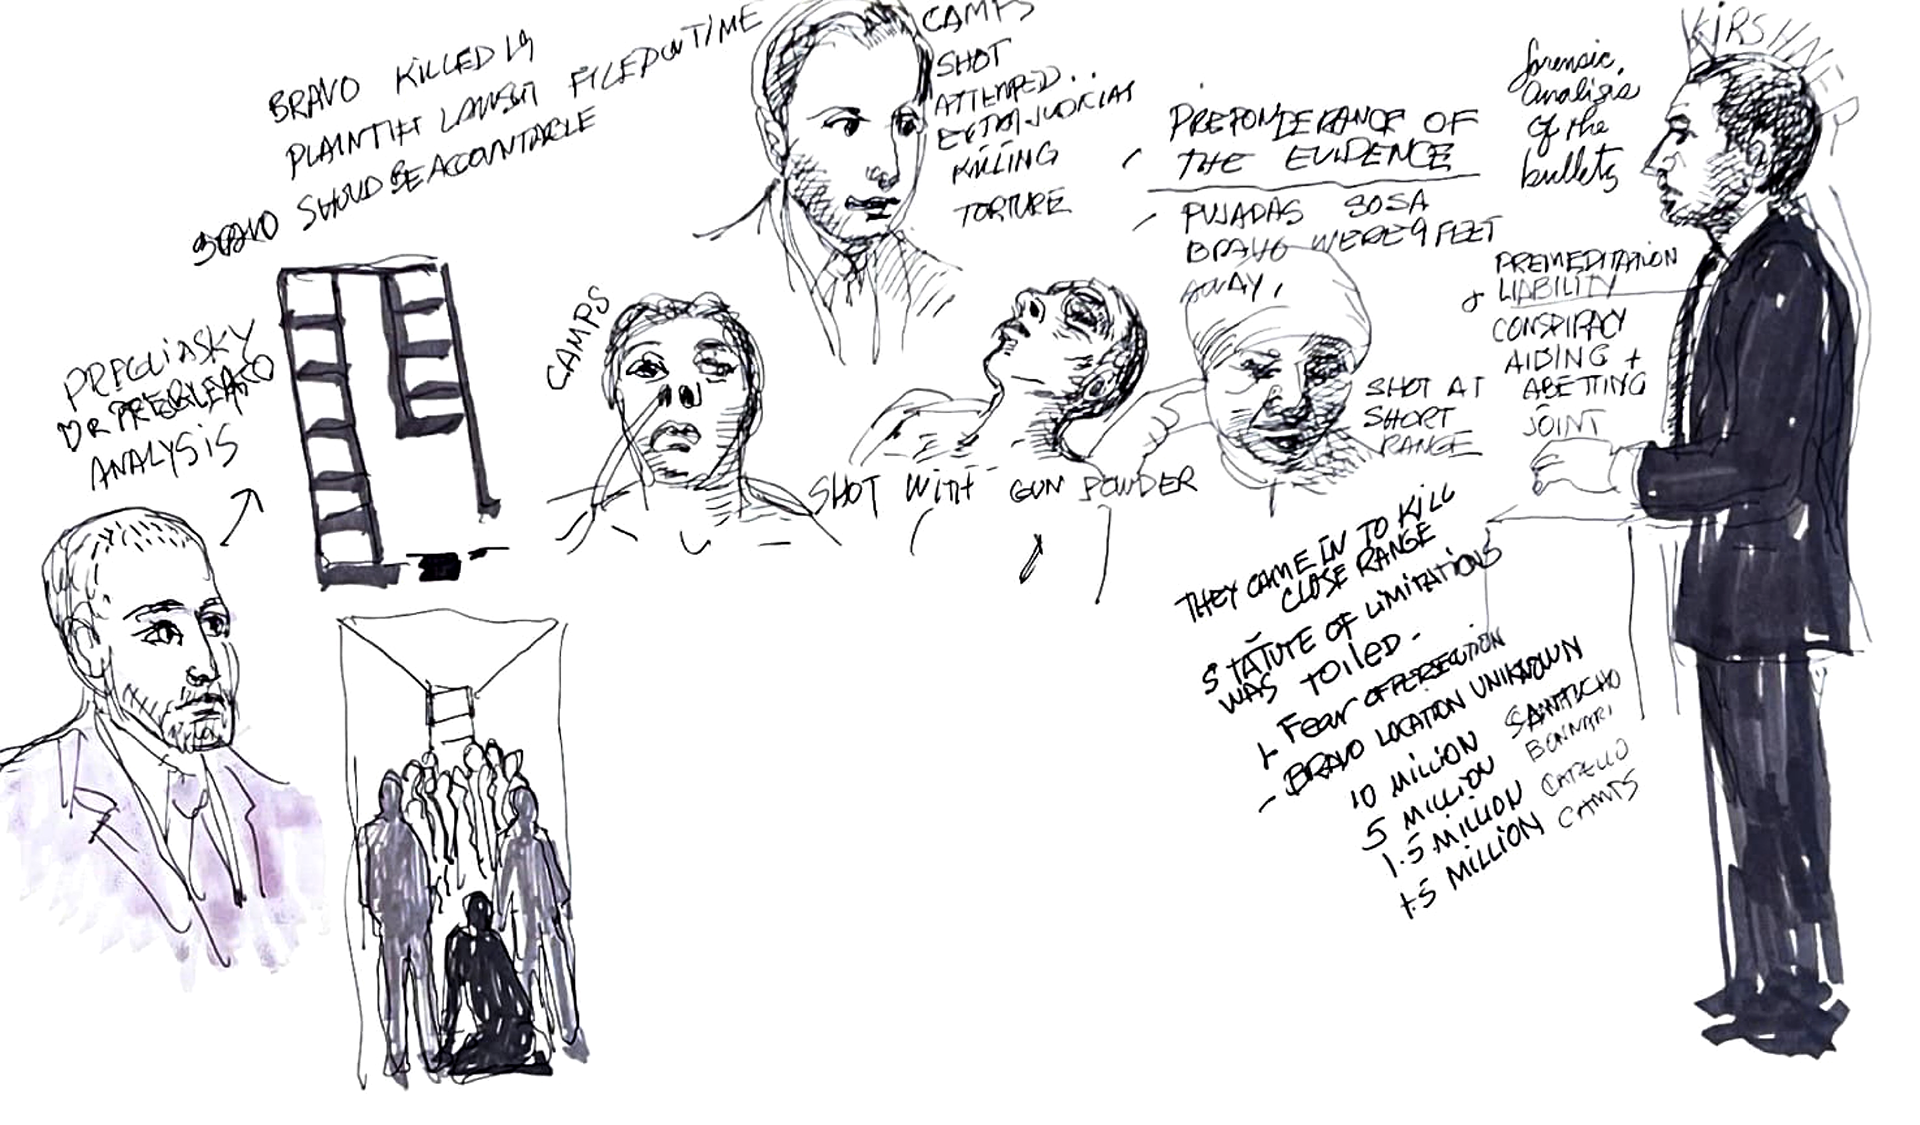 BRAVO KILLED 19
PLAINTIFF LAWSUIT FILED ON TIME
BRAVO SHOULD BE ACCOUNTABLE
CAMPS
SHOT
ATTEMPED..
EXTRA-JUDICIAS
KILLING
TORTURE
PREPONDERANCE OF
THE EVIDENCE
PUJADAS SOSA
BRAVO WERE 9 FEET
AWAY,
forensic
analisis
of the
bullets
KIRSHNER
PREMEDITATION
+ LIABILITY
CONSPIRACY
AIDING +
ABETTING
JOINT
PREGLIASKY
DR
ANALYSIS
CAMPS
SHOT WITH GUN POWDER
SHOT AT
SHORT
RANGE
THEY CAME IN TO KILL
CLOSE RANGE
STATUTE OF LIMITATIONS
WAS TOILED -
+ Fear OF PERSECUTION
- BRAVO LOCATION UNIKNOWN
10 MILLION SANTUCHO
5 MILLION BONNARI
1.5 MILLION CAPELLO
1.5 MILLION CAMPS